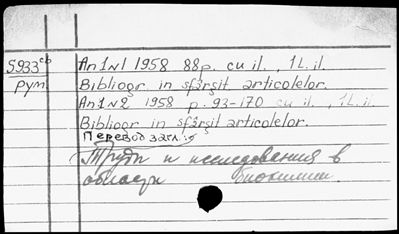 S933cb
рум.
An 1 №1 1958 88 p. cu il., 1 L. il.
Bibliogr. in sfârșit articolelor.
An 1 №2 1958 p. 93-170 cu il., 1 L. il.
Bibliogr. in sfârșit articolelor.
Перевод загл.:
Труды и исследования в
области биохимии.